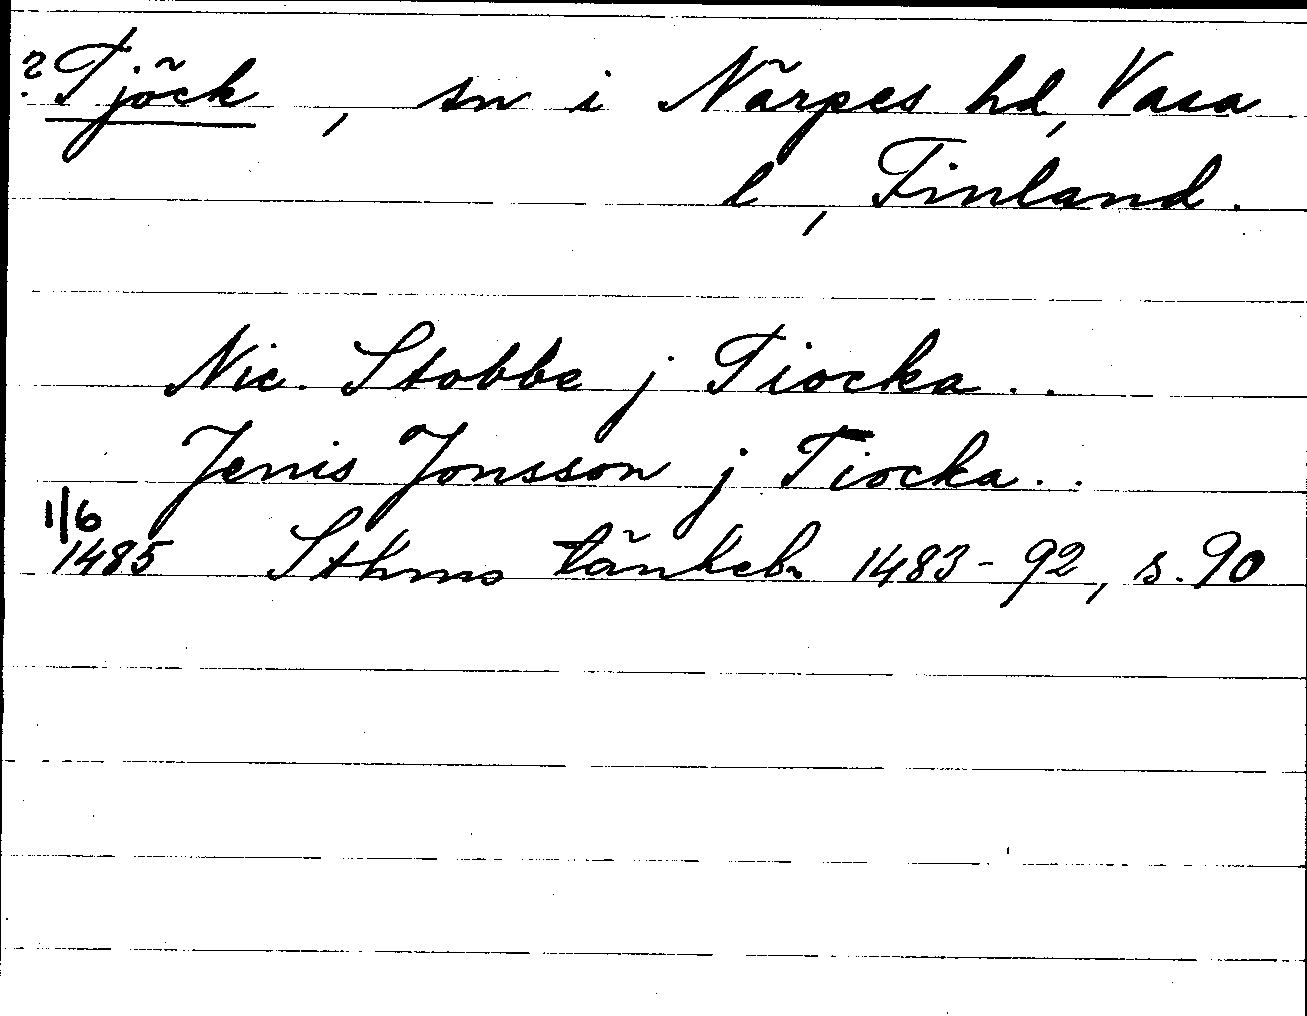 ? Tjöck, sn i Närpes hd, Vasa
l, Finland.
Nic. Stobbe j Tiocka..
Jenis Jonsson j Tiocka..
1/6
1485 Sthms tänkeb. 1483-92, s. 90